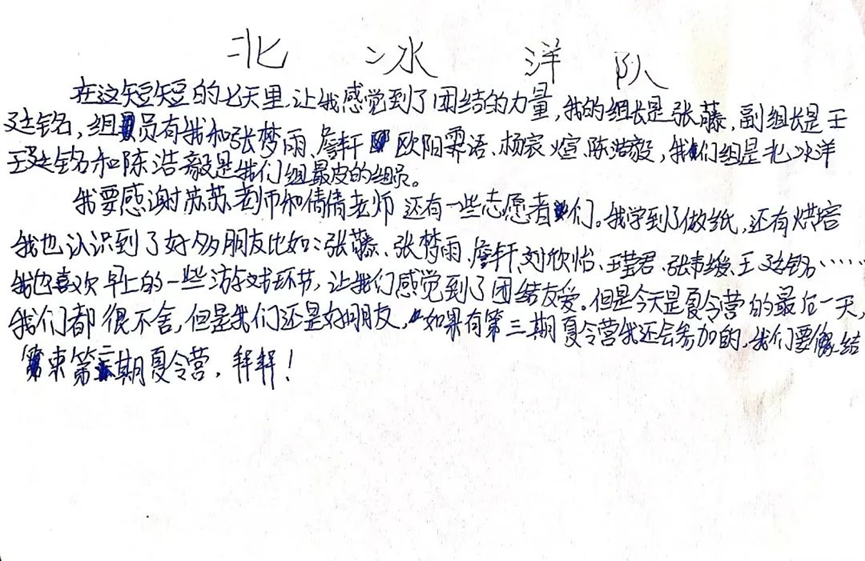 北冰洋队
在这短短的七天里,让我感觉到了团结的力量,我的组长是张藤,副组长是王
廷铭,组员有我和张梦雨、詹轩、欧阳霁洛、杨宸煊、陈浩毅,我们组是北冰洋
王廷铭和陈浩毅是我们组最皮的组员。
我要感谢苏苏老师和倩倩老师还有一些志愿者们。我学到了做纸,还有烘焙
我也认识到了好多朋友比如:张藤、张梦雨、詹轩、刘欣怡、王莹君、张韦缓、王廷铭……
我也喜欢早上的一些游戏环节,让我们感觉到了团结友爱。但是今天是夏令营的最后一天,
我们都很不舍,但是我们还是好朋友,如果有第三期夏令营我还会参加的,我们要结
束第二期夏令营,拜拜!